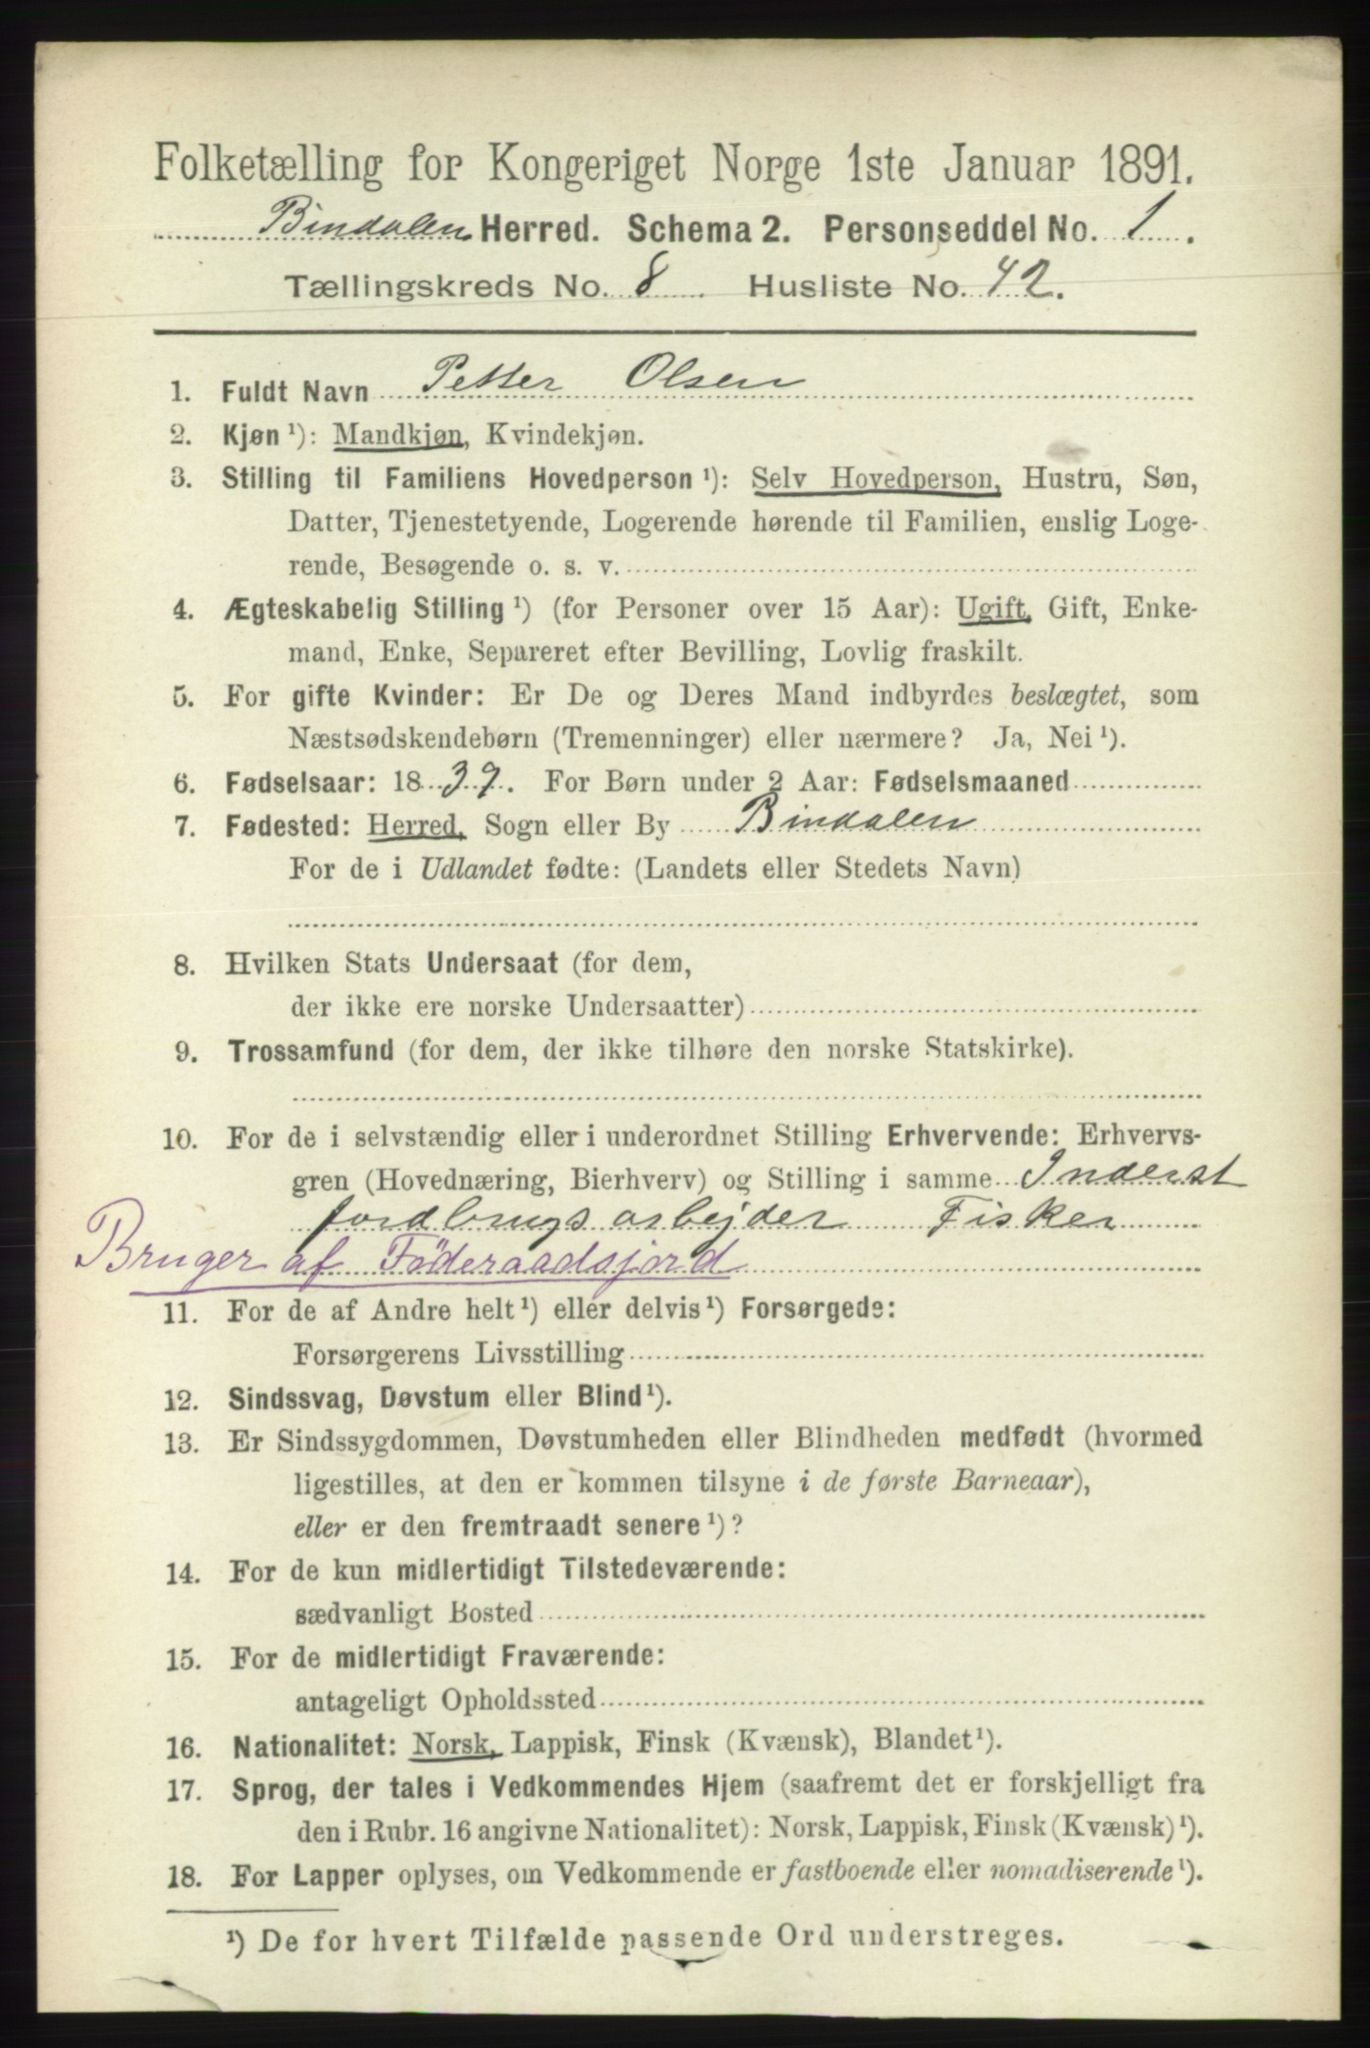 Folketælling for Kongeriget Norge 1ste Januar 1891.
Bindalen Herred. Schema 2. Personseddel No. 1.
Tællingskreds No. 8. Husliste No. 42.
1. Fuldt Navn Petter Olsen
2. Kjøn ¹): Mandkjøn, Kvindekjøn.
3. Stilling til Familiens Hovedperson ¹): Selv Hovedperson, Hustru, Søn,
Datter, Tjenestetyende, Logerende hørende til Familien, enslig Loge-
rende, Besøgende o. s. v.
4. Ægteskabelig Stilling ¹) (for Personer over 15 Aar): Ugift, Gift, Enke-
mand, Enke, Separeret efter Bevilling, Lovlig fraskilt.
5. For gifte Kvinder: Er De og Deres Mand indbyrdes beslægtet, som
Næstsødskendebørn (Tremenninger) eller nærmere? Ja, Nei ¹).
6. Fødselsaar: 1839. For Børn under 2 Aar: Fødselsmaaned
7. Fødested: Herred, Sogn eller By Bindalen
For de i Udlandet fødte: (Landets eller Stedets Navn)
8. Hvilken Stats Undersaat (for dem,
der ikke ere norske Undersaatter)
9. Trossamfund (for dem, der ikke tilhøre den norske Statskirke).
10. For de i selvstændig eller i underordnet Stilling Erhvervende: Erhvervs-
gren (Hovednæring, Bierhverv) og Stilling i samme Inderst
jordbrugsarbejder Fisker
Bruger af Föderaadsjord
11. For de af Andre helt ¹) eller delvis ¹) Forsørgede:
Forsørgerens Livsstilling
12. Sindssvag, Døvstum eller Blind ¹).
13. Er Sindssygdommen, Døvstumheden eller Blindheden medfødt (hvormed
ligestilles, at den er kommen tilsyne i de første Barneaar),
eller er den fremtraadt senere ¹)?
14. For de kun midlertidigt Tilstedeværende:
sædvanligt Bosted
15. For de midlertidigt Fraværende:
antageligt Opholdssted
16. Nationalitet: Norsk, Lappisk, Finsk (Kvænsk), Blandet ¹).
17. Sprog, der tales i Vedkommendes Hjem (saafremt det er forskjelligt fra
den i Rubr. 16 angivne Nationalitet): Norsk, Lappisk, Finsk (Kvænsk) ¹).
18. For Lapper oplyses, om Vedkommende er fastboende eller nomadiserende ¹).
¹) De for hvert Tilfælde passende Ord understreges.